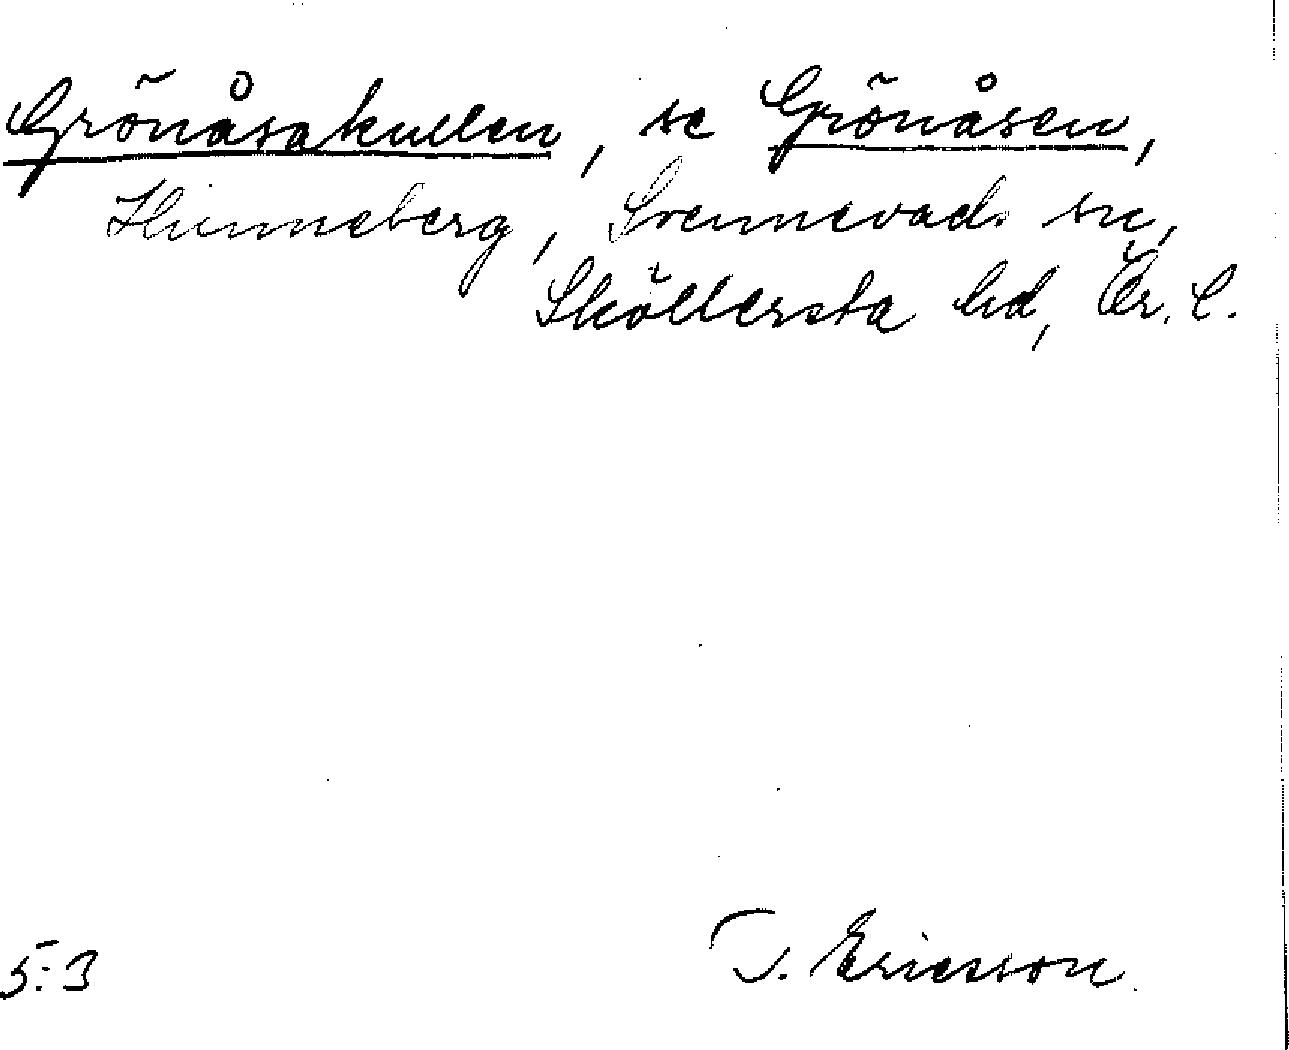 Grönåsakullen, se Grönåsen,
Hunneberg, Svennevads sn,
Sköllersta hd, Ör. l.
5:3
J. Ericsson